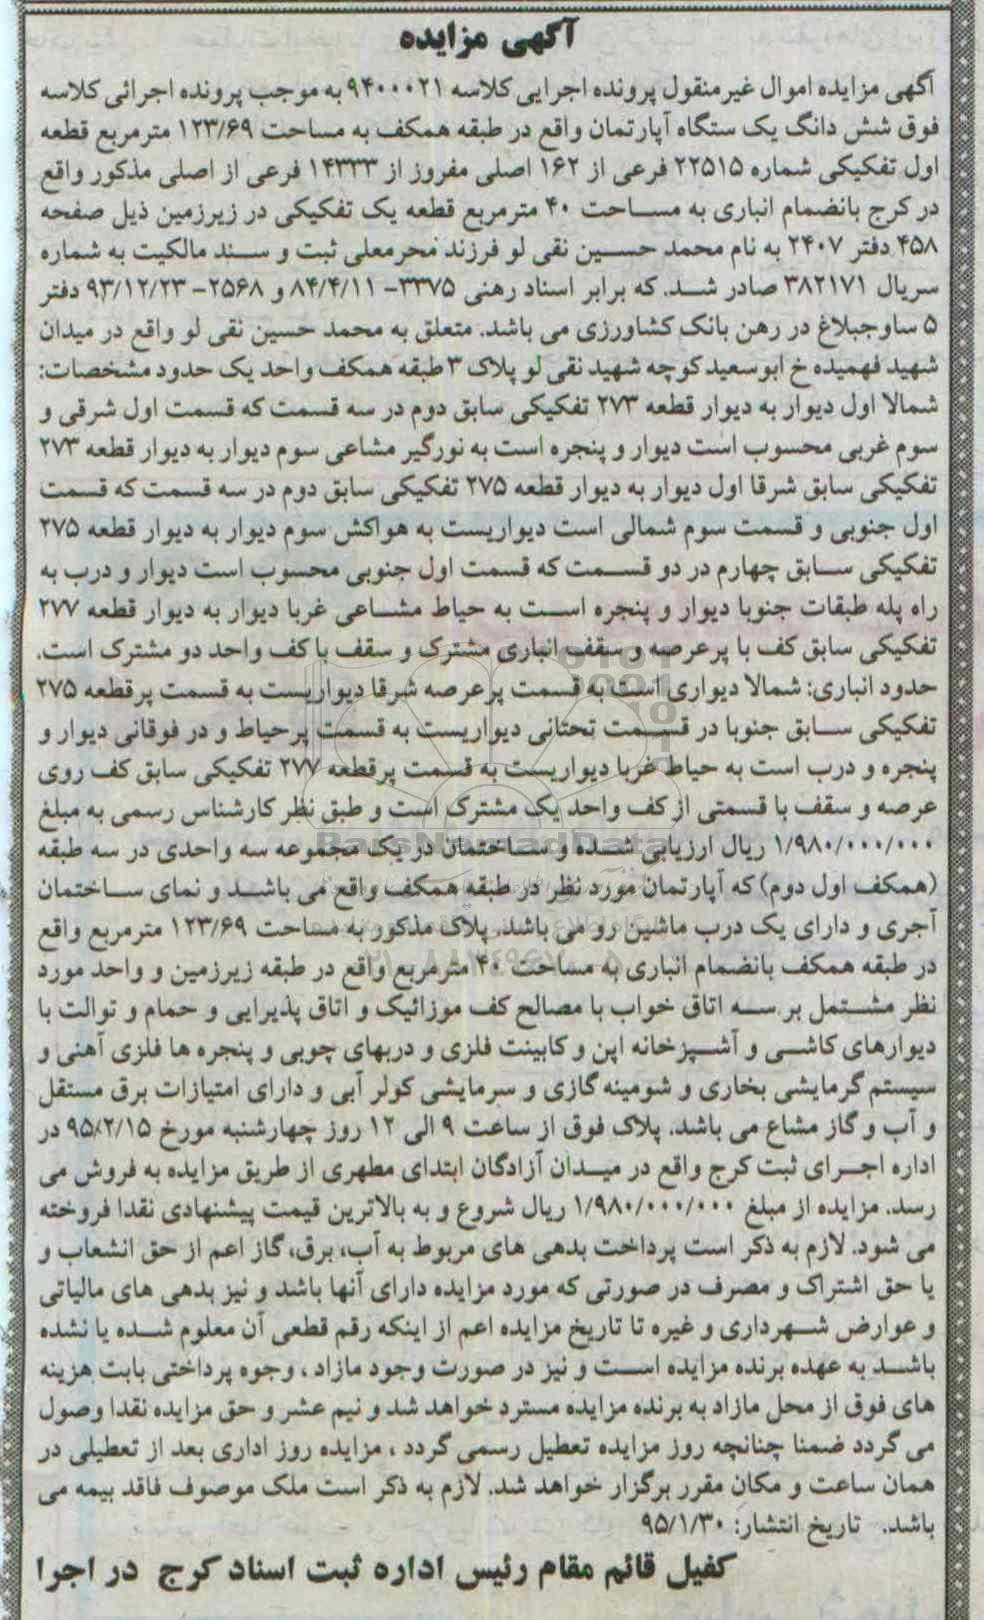 آگهی مزایده
آگهی مزایده اموال غیرمنقول پرونده اجرایی کلاسه ۹۴۰۰۰۲۱ به موجب پرونده اجرائی کلاسه
فوق شش دانگ یک ستگاه آپارتمان واقع در طبقه همکف به مساحت ۱۲۳/۶۹ مترمربع قطعه
اول تفکیکی شماره ۲۲۵۱۵ فرعی از ۱۶۲ اصلی مفروز از ۱۴۳۳۳ فرعی از اصلی مذکور واقع
در کرج بانضمام انباری به مساحت ۴۰ مترمربع قطعه یک تفکیکی در زیرزمین ذیل صفحه
۴۵۸ دفتر ۲۴۰۷ به نام محمد حسین نقی لو فرزند محرمعلی ثبت و سند مالکیت به شماره
سریال ۳۸۲۱۷۱ صادر شد. که برابر اسناد رهنی ۳۳۷۵-۸۴/۴/۱۱ و ۲۵۶۸-۹۳/۱۲/۲۳ دفتر
۵ ساوجبلاغ در رهن بانک کشاورزی می باشد. متعلق به محمد حسین نقی لو واقع در میدان
شهید فهمیده خ ابوسعید کوچه شهید نقی لو پلاک ۳ طبقه همکف واحد یک حدود مشخصات:
شمالا اول دیوار به دیوار قطعه ۲۷۳ تفکیکی سابق دوم در سه قسمت که قسمت اول شرقی و
سوم غربی محسوب است دیوار و پنجره است به نورگیر مشاعی سوم دیوار به دیوار قطعه ۲۷۳
تفکیکی سابق شرقا اول دیوار به دیوار قطعه ۲۷۵ تفکیکی سابق دوم در سه قسمت که قسمت
اول جنوبی و قسمت سوم شمالی است دیواریست به هواکش سوم دیوار به دیوار قطعه ۲۷۵
تفکیکی سابق چهارم در دو قسمت که قسمت اول جنوبی محسوب است دیوار و درب به
راه پله طبقات جنوبا دیوار و پنجره است به حیاط مشاعی غربا دیوار به دیوار قطعه ۲۷۷
تفکیکی سابق کف با پرعرصه و سقف انباری مشترک و سقف با کف واحد دو مشترک است.
حدود انباری: شمالا دیواری است به قسمت پرعرصه شرقا دیواریست به قسمت پرقطعه ۲۷۵
تفکیکی سابق جنوبا در قسمت تحتانی دیواریست به قسمت پرحیاط و در فوقانی دیوار و
پنجره و درب است به حیاط غربا دیواریست به قسمت پرقطعه ۲۷۷ تفکیکی سابق کف روی
عرصه و سقف با قسمتی از کف واحد یک مشترک است و طبق نظر کارشناس رسمی به مبلغ
۱/۹۸۰/۰۰۰/۰۰۰ ریال ارزیابی شده و ساختمان در یک مجموعه سه واحدی در سه طبقه
(همکف اول دوم) که آپارتمان مورد نظر در طبقه همکف واقع می باشد و نمای ساختمان
آجری و دارای یک درب ماشین رو می باشد. پلاک مذکور به مساحت ۱۲۳/۶۹ مترمربع واقع
در طبقه همکف بانضمام انباری به مساحت ۴۰ مترمربع واقع در طبقه زیرزمین و واحد مورد
نظر مشتمل بر سه اتاق خواب با مصالح کف موزائیک و اتاق پذیرایی و حمام و توالت با
دیوارهای کاشی و آشپزخانه اپن و کابینت فلزی و دربهای چوبی و پنجره ها فلزی آهنی و
سیستم گرمایشی بخاری و شومینه گازی و سرمایشی کولر آبی و دارای امتیازات برق مستقل
و آب و گاز مشاع می باشد. پلاک فوق از ساعت ۹ الی ۱۲ روز چهارشنبه مورخ ۹۵/۲/۱۵ در
اداره اجرای ثبت کرج واقع در میدان آزادگان ابتدای مطهری از طریق مزایده به فروش می
رسد. مزایده از مبلغ ۱/۹۸۰/۰۰۰/۰۰۰ ریال شروع و به بالاترین قیمت پیشنهادی نقدا فروخته
می شود. لازم به ذکر است پرداخت بدهی های مربوط به آب، برق، گاز اعم از حق انشعاب و
یا حق اشتراک و مصرف در صورتی که مورد مزایده دارای آنها باشد و نیز بدهی های مالیاتی
و عوارض شهرداری و غیره تا تاریخ مزایده اعم از اینکه رقم قطعی آن معلوم شده یا نشده
باشد به عهده برنده مزایده است و نیز در صورت وجود مازاد ، وجوه پرداختی بابت هزینه
های فوق از محل مازاد به برنده مزایده مسترد خواهد شد و نیم عشر و حق مزایده نقدا وصول
می گردد ضمنا چنانچه روز مزایده تعطیل رسمی گردد ، مزایده روز اداری بعد از تعطیلی در
همان ساعت و مکان مقرر برگزار خواهد شد. لازم به ذکر است ملک موصوف فاقد بیمه می
باشد. تاریخ انتشار: ۹۵/۱/۳۰
کفیل قائم مقام رئیس اداره ثبت اسناد کرج در اجرا